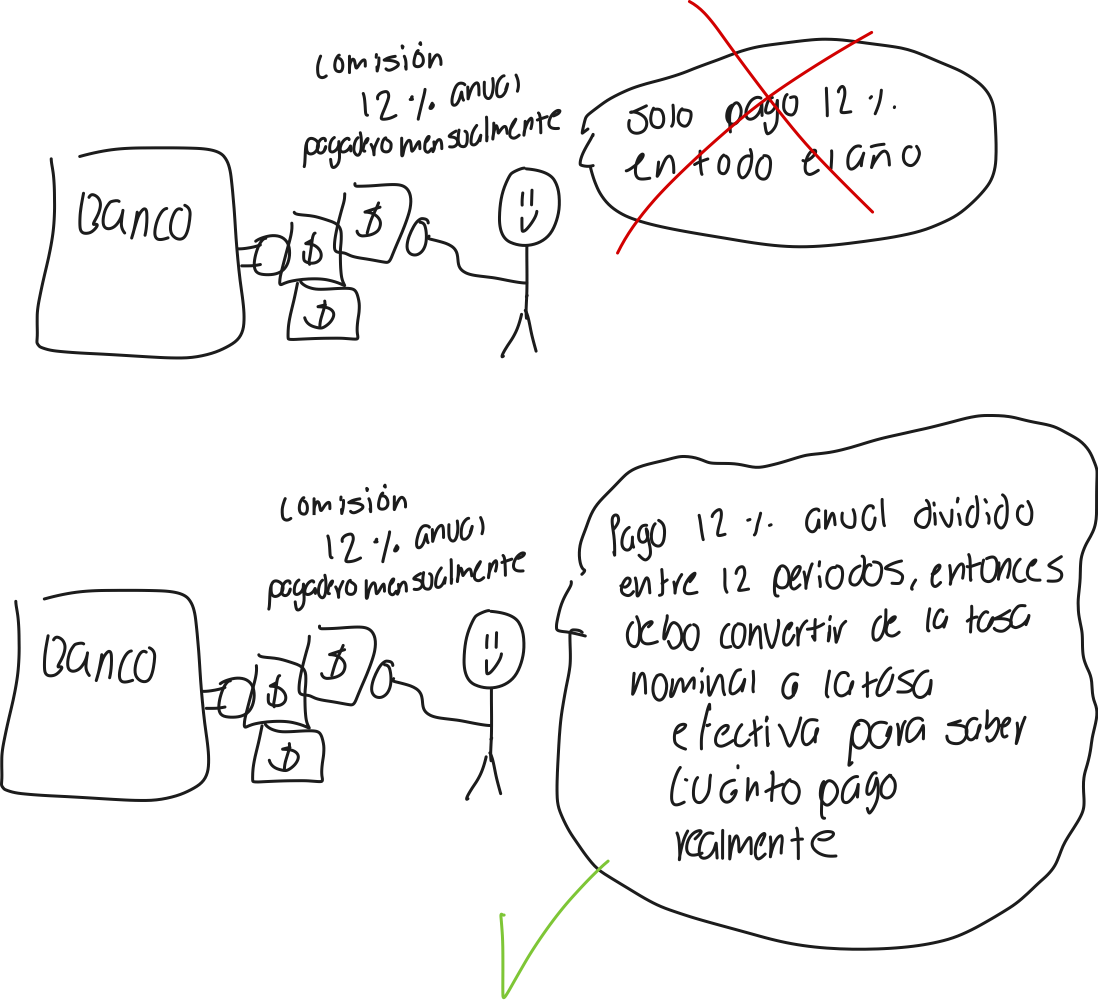 Comisión
12 % anual
pagadero mensualmente
Solo pago 12 %
en todo el año
Banco
$
$
$
Comisión
12 % anual
pagadero mensualmente
Pago 12 % anual dividido
entre 12 periodos, entonces
debo convertir de la tasa
nominal a la tasa
efectiva para saber
cuánto pago
realmente
Banco
$
$
$